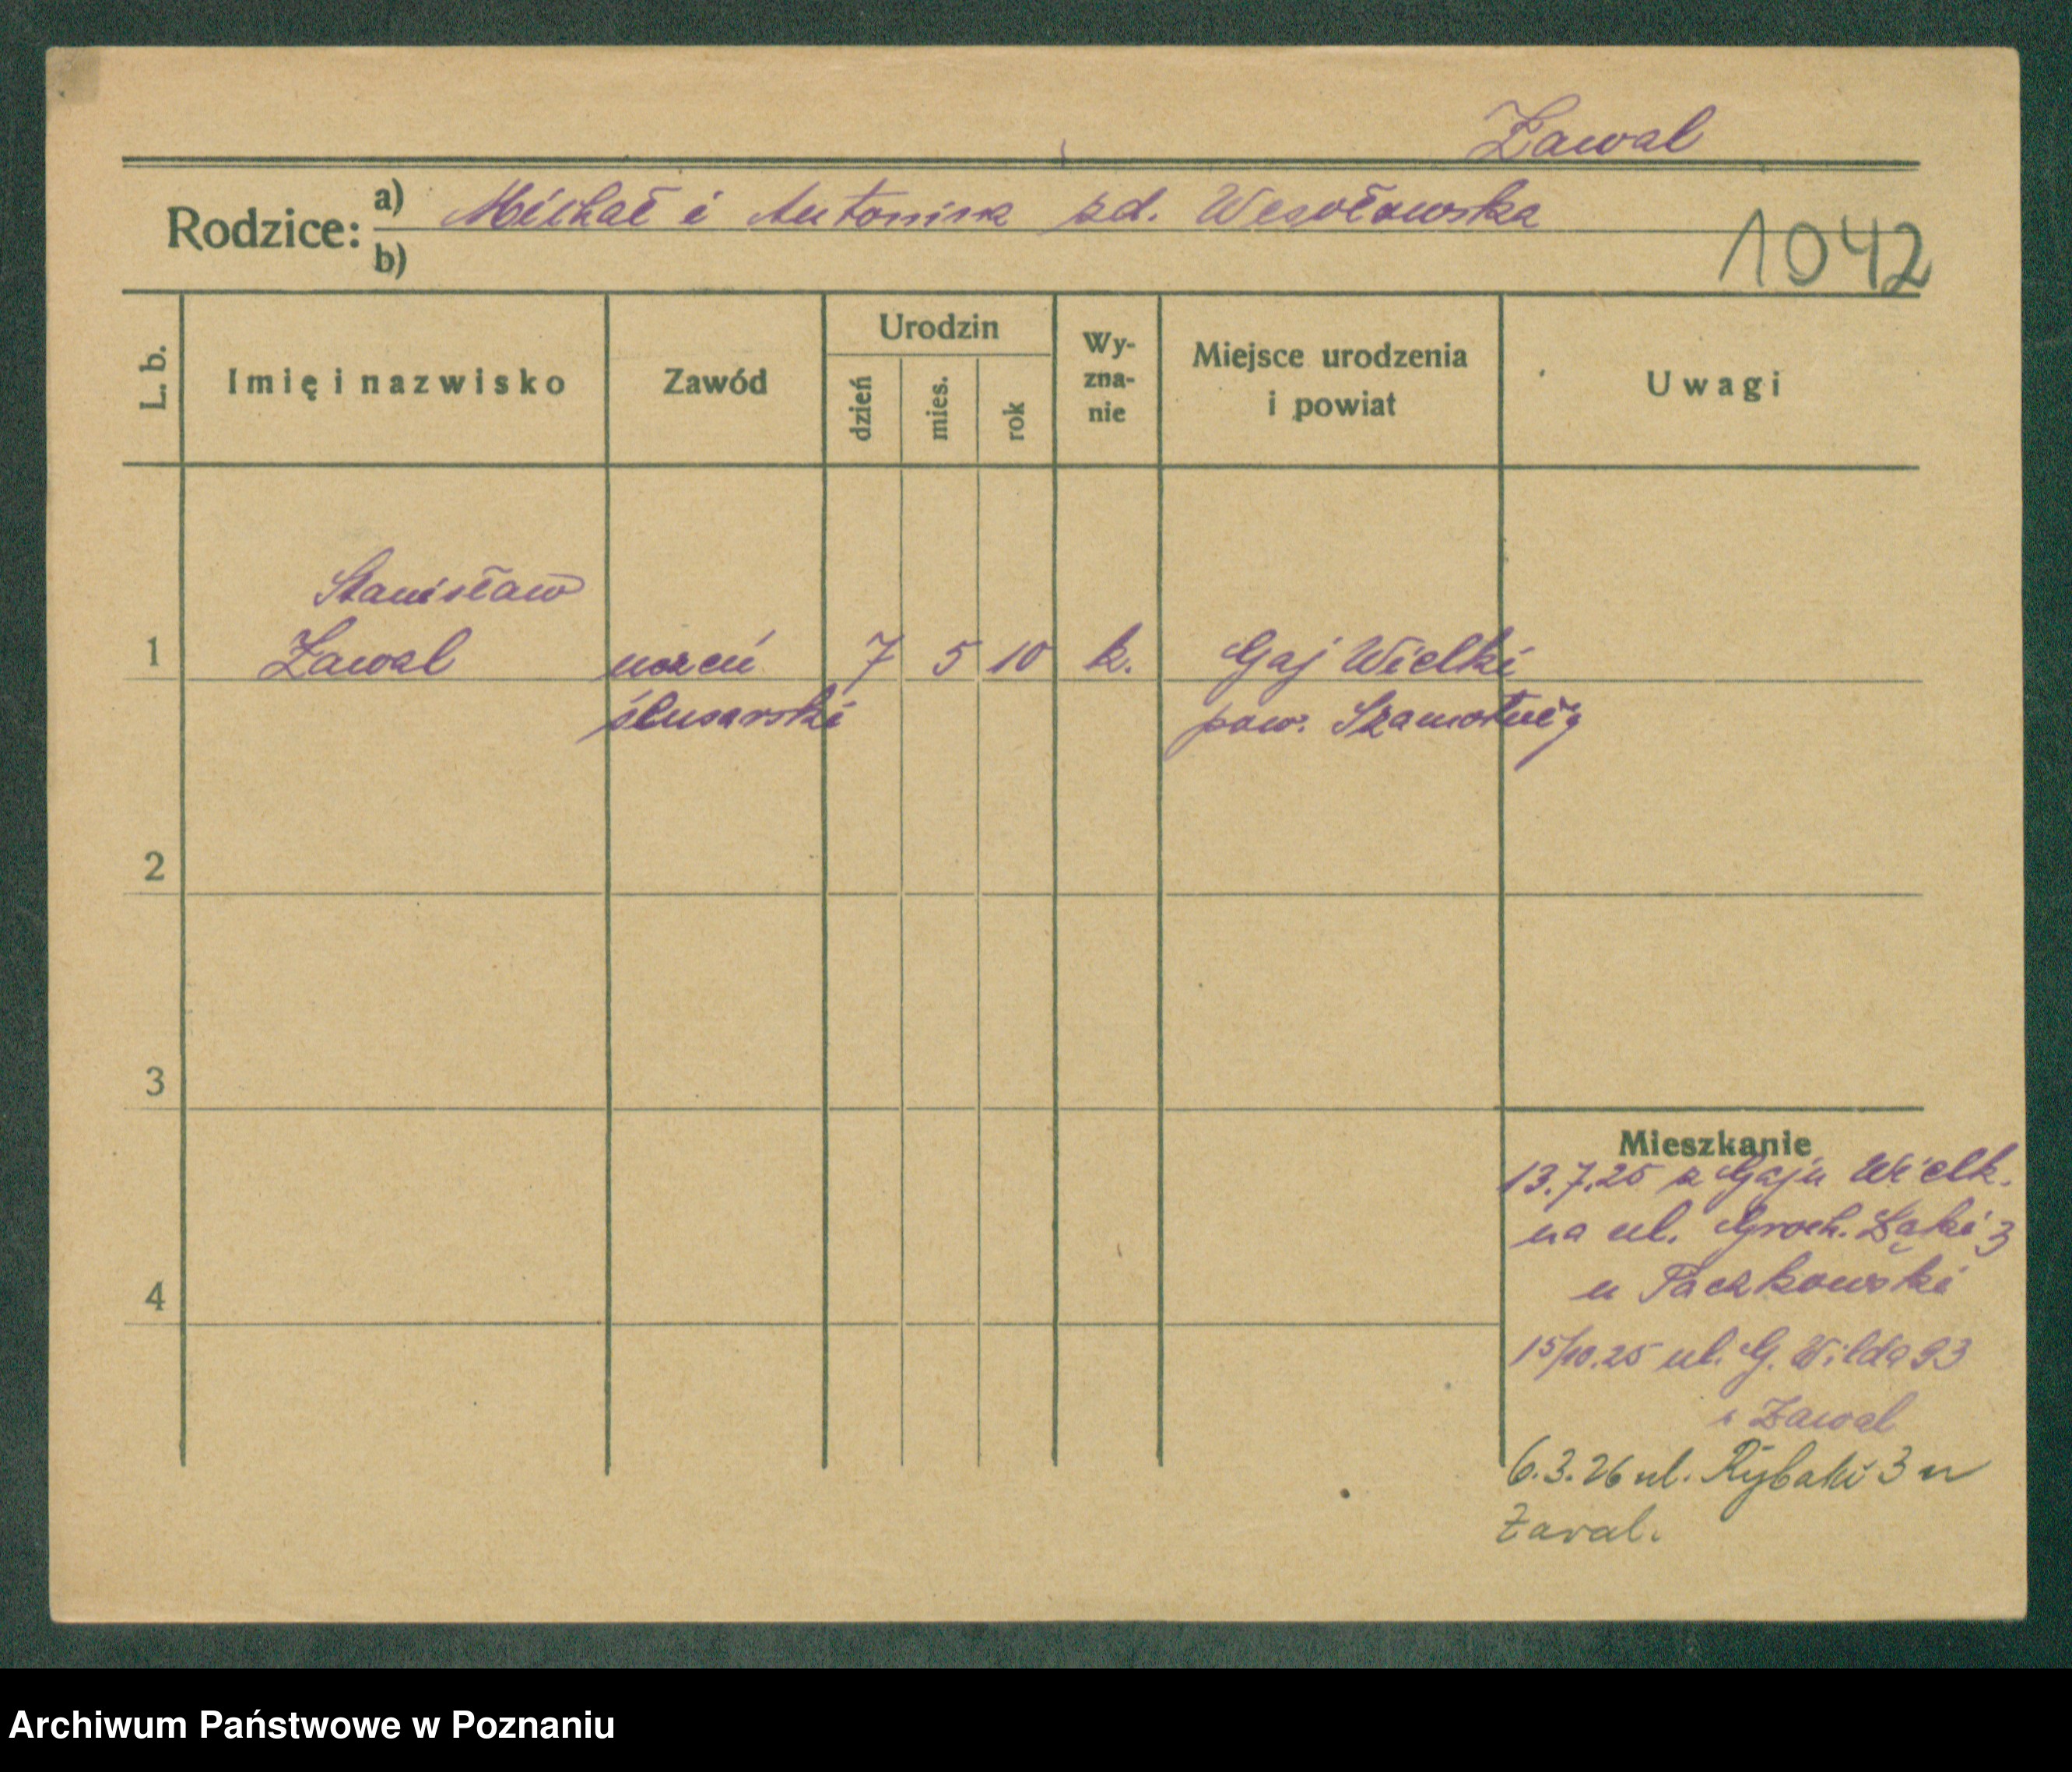 Zawal
Rodzice: a) Michał i Antonina zd. Wesołowska
b)
1042
L. b.
Imię i nazwisko
Zawód
Urodzin
dzień
mies.
rok
Wy-
zna-
nie
Miejsce urodzenia
i powiat
Uwagi
Stanisław
1 Zawal uczeń 7 5 10 k. Gaj Wielki
ślusarski pow. Szamotuły
2
3
4
Mieszkanie
13.7.25 z Gaju Wielk.
na ul. Groch. Łąki 3
u Paczkowski
15/10.25 ul. G. Wilda 93
Zawal
6.3.26 ul. Rybaki 3 u
Zawal.
Archiwum Państwowe w Poznaniu